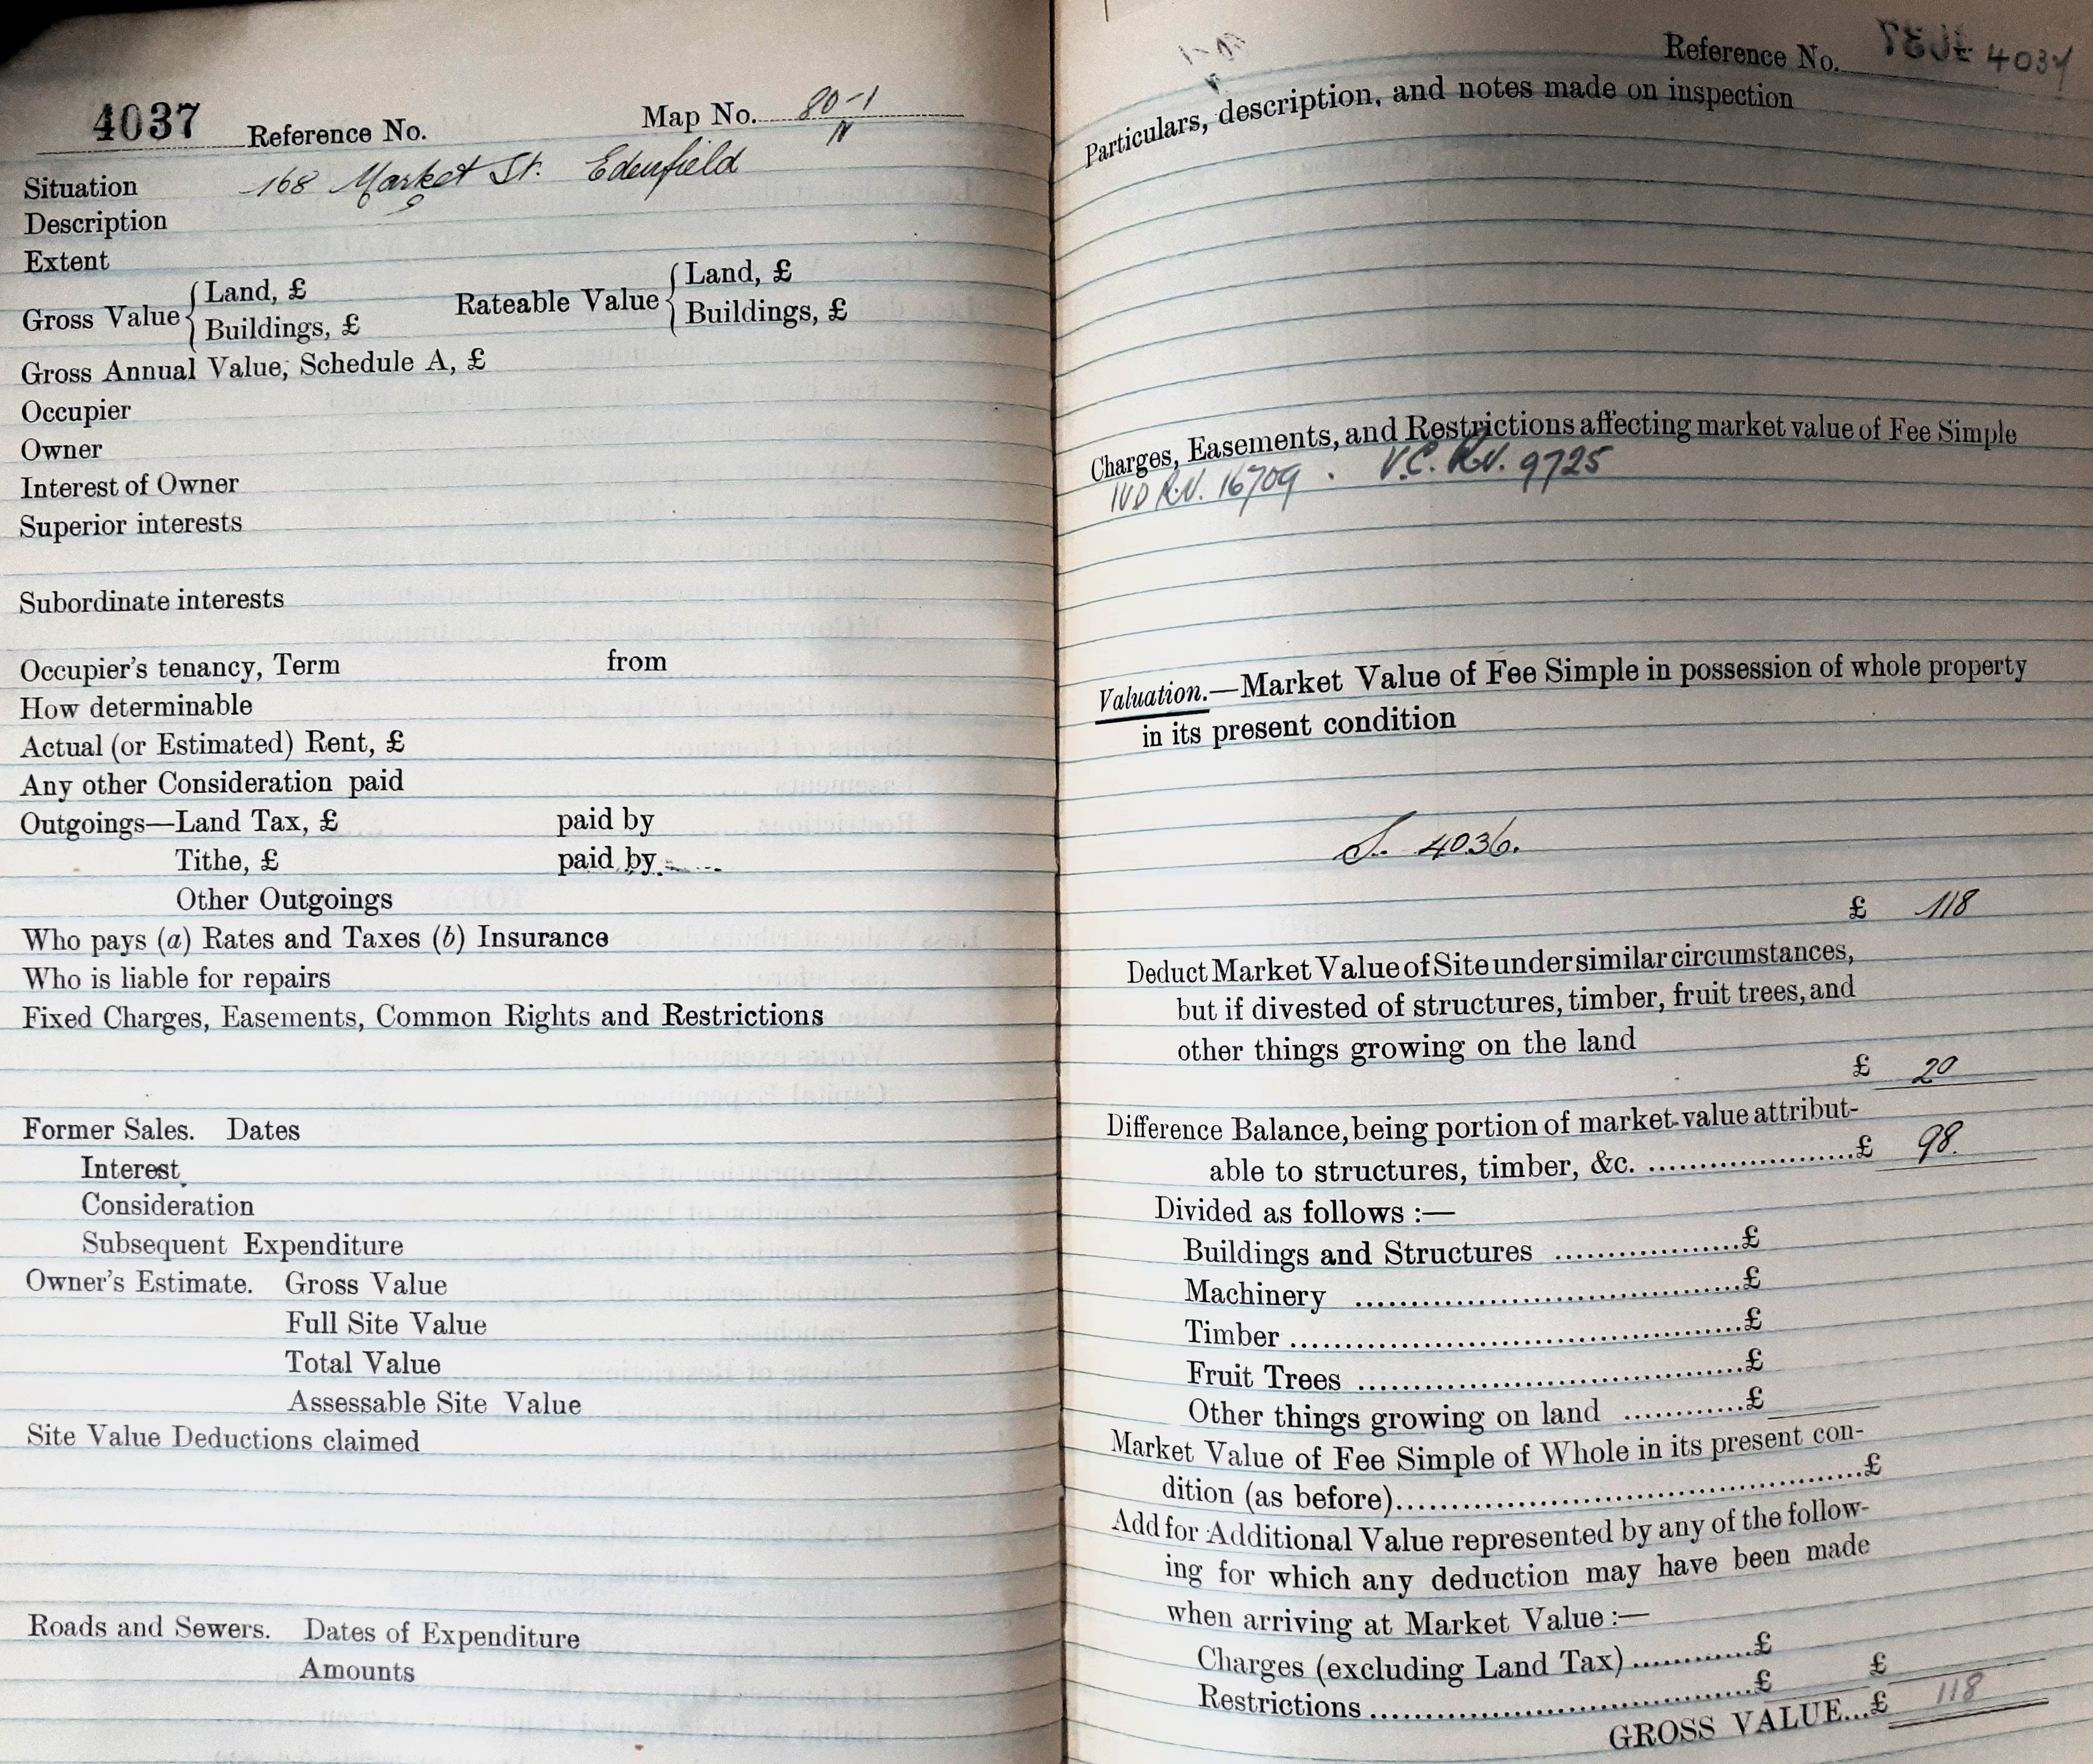 4037 Reference No. Map No. 80-1
N
Situation 168 Market St. Edenfield
Description
Extent
Gross Value { Land, £
Buildings, £
Rateable Value { Land, £
Buildings, £
Gross Annual Value, Schedule A, £
Occupier
Owner
Interest of Owner
Superior interests
Subordinate interests
Occupier's tenancy, Term from
How determinable
Actual (or Estimated) Rent, £
Any other Consideration paid
Outgoings—Land Tax, £ paid by
Tithe, £ paid by
Other Outgoings
Who pays (a) Rates and Taxes (b) Insurance
Who is liable for repairs
Fixed Charges, Easements, Common Rights and Restrictions
Former Sales. Dates
Interest
Consideration
Subsequent Expenditure
Owner's Estimate. Gross Value
Full Site Value
Total Value
Assessable Site Value
Site Value Deductions claimed
Roads and Sewers. Dates of Expenditure
Amounts
Reference No. 4037
Particulars, description, and notes made on inspection
Charges, Easements, and Restrictions affecting market value of Fee Simple
R.V. 16709 . V.C. R.V. 9725
Valuation.—Market Value of Fee Simple in possession of whole property
in its present condition
S. 4036.
£ 118
Deduct Market Value of Site under similar circumstances,
but if divested of structures, timber, fruit trees, and
other things growing on the land
£ 20
Difference Balance, being portion of market value attribut-
able to structures, timber, &c. ....................£ 98.
Divided as follows :—
Buildings and Structures ..................£
Machinery .....................................£
Timber ...........................................£
Fruit Trees .....................................£
Other things growing on land ............£
Market Value of Fee Simple of Whole in its present con-
dition (as before)..............................................£
Add for Additional Value represented by any of the follow-
ing for which any deduction may have been made
when arriving at Market Value :—
Charges (excluding Land Tax) ............£
Restrictions .......................................£ £
GROSS VALUE...£ 118